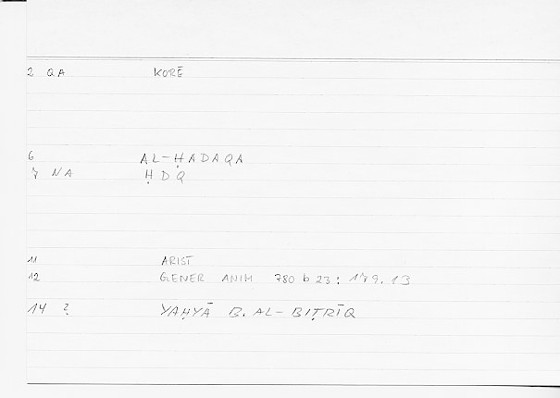 2 QA KORĒ
6 AL-ḤADAQA
7 NA ḤDQ
11 ARIST
12 GENER ANIM 780 b 23 : 179.13
14 ? YAḤYĀ B. AL-BIṬRĪQ